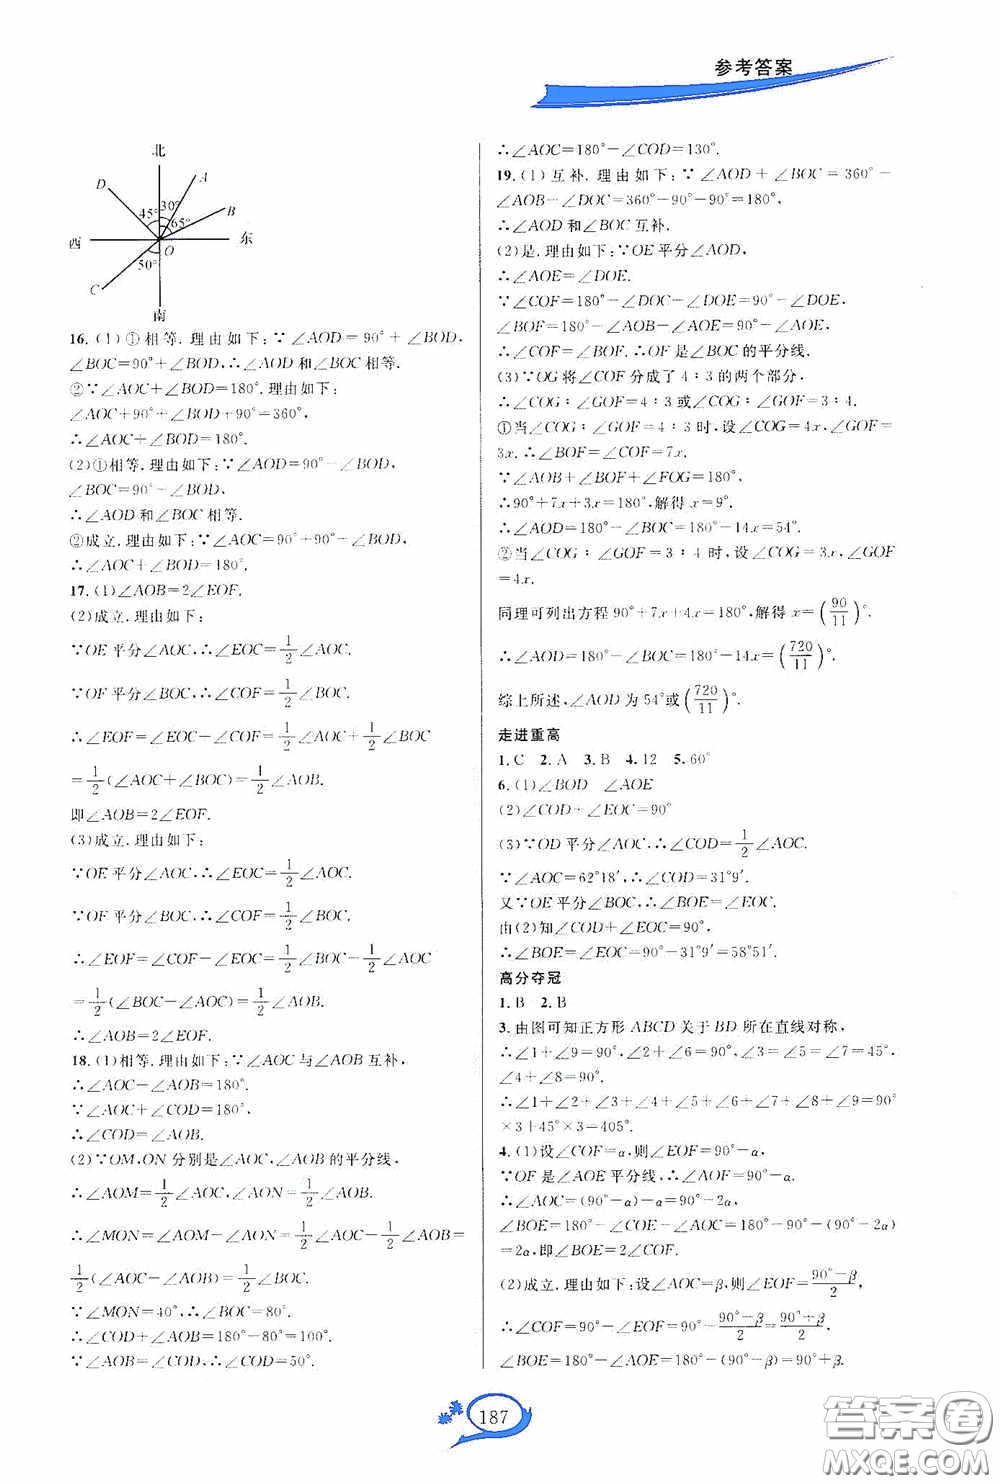 参考答案
北
D
A
30°
45°
B
65°
西
东
O
50°
C
南
16. (1)①相等. 理由如下:∵∠AOD=90°+∠BOD,
∠BOC=90°+∠BOD,∴∠AOD和∠BOC相等.
②∵∠AOC+∠BOD=180°. 理由如下:
∠AOC+90°+∠BOD+90°=360°,
∴∠AOC+∠BOD=180°.
(2)①相等. 理由如下:∵∠AOD=90°-∠BOD,
∠BOC=90°-∠BOD,
∴∠AOD和∠BOC相等.
②成立. 理由如下:∵∠AOC=90°+90°-∠BOD,
∴∠AOC+∠BOD=180°.
17. (1)∠AOB=2∠EOF.
(2)成立. 理由如下:
∵OE平分∠AOC,∴∠EOC=1/2∠AOC.
∵OF平分∠BOC,∴∠COF=1/2∠BOC.
∴∠EOF=∠EOC-∠COF=1/2∠AOC+1/2∠BOC
=1/2(∠AOC+∠BOC)=1/2∠AOB.
即∠AOB=2∠EOF.
(3)成立. 理由如下:
∵OE平分∠AOC,∴∠EOC=1/2∠AOC.
∵OF平分∠BOC,∴∠COF=1/2∠BOC.
∴∠EOF=∠COF-∠EOC=1/2∠BOC-1/2∠AOC
=1/2(∠BOC-∠AOC)=1/2∠AOB.
∴∠AOB=2∠EOF.
18. (1)相等. 理由如下:∵∠AOC与∠AOB互补,
∴∠AOC-∠AOB=180°.
∴∠AOC+∠COD=180°,
∴∠COD=∠AOB.
(2)∵OM,ON分别是∠AOC,∠AOB的平分线,
∴∠AOM=1/2∠AOC,∠AON=1/2∠AOB.
∴∠MON=∠AOM-∠AON=1/2∠AOC-1/2∠AOB=
1/2(∠AOC-∠AOB)=1/2∠BOC.
∵∠MON=40°,∴∠BOC=80°.
∴∠COD+∠AOB=180°-80°=100°.
∵∠AOB=∠COD,∴∠COD=50°.
∴∠AOC=180°-∠COD=130°.
19. (1)互补. 理由如下:∵∠AOD+∠BOC=360°-
∠AOB-∠DOC=360°-90°-90°=180°,
∴∠AOD和∠BOC互补.
(2)是. 理由如下:∵OE平分∠AOD,
∴∠AOE=∠DOE.
∵∠COF=180°-∠DOC-∠DOE=90°-∠DOE,
∠BOF=180°-∠AOB-∠AOE=90°-∠AOE,
∴∠COF=∠BOF. ∴OF是∠BOC的平分线.
(3)∵OG将∠COF分成了4∶3的两个部分,
∴∠COG∶∠GOF=4∶3或∠COG∶∠GOF=3∶4.
①当∠COG∶∠GOF=4∶3时,设∠COG=4x,∠GOF=
3x. ∴∠BOF=∠COF=7x.
∵∠AOB+∠BOF+∠FOG=180°,
∴90°+7x+3x=180°,解得x=9°.
∴∠AOD=180°-∠BOC=180°-14x=54°.
②当∠COG∶∠GOF=3∶4时,设∠COG=3x,∠GOF
=4x.
同理可列出方程90°+7x+4x=180°,解得x=(90/11)°.
∴∠AOD=180°-∠BOC=180°-14x=(720/11)°.
综上所述,∠AOD为54°或(720/11)°.
走进重高
1. C 2. A 3. B 4. 12 5. 60°
6. (1)∠BOD ∠AOE
(2)∠COD+∠EOC=90°
(3)∵OD平分∠AOC,∴∠COD=1/2∠AOC.
∵∠AOC=62°18′,∴∠COD=31°9′.
又∵OE平分∠BOC,∴∠BOE=∠EOC.
由(2)知∠COD+∠EOC=90°,
∴∠BOE=∠EOC=90°-31°9′=58°51′.
高分夺冠
1. B 2. B
3. 由图可知正方形ABCD关于BD所在直线对称,
∴∠1+∠9=90°,∠2+∠6=90°,∠3=∠5=∠7=45°,
∠4+∠8=90°.
∴∠1+∠2+∠3+∠4+∠5+∠6+∠7+∠8+∠9=90°
×3+45°×3=405°.
4. (1)设∠COF=α,则∠EOF=90°-α.
∵OF是∠AOE平分线,∴∠AOF=90°-α.
∴∠AOC=(90°-α)-α=90°-2α,
∠BOE=180°-∠COE-∠AOC=180°-90°-(90°-2α)
=2α,即∠BOE=2∠COF.
(2)成立. 理由如下:设∠AOC=β,则∠EOF=(90°-β)/2,
∴∠COF=90°-∠EOF=90°-(90°-β)/2=(90°+β)/2.
∠BOE=180°-∠AOE=180°-(90°-β)=90°+β.
187
答案卷
MXQE.COM